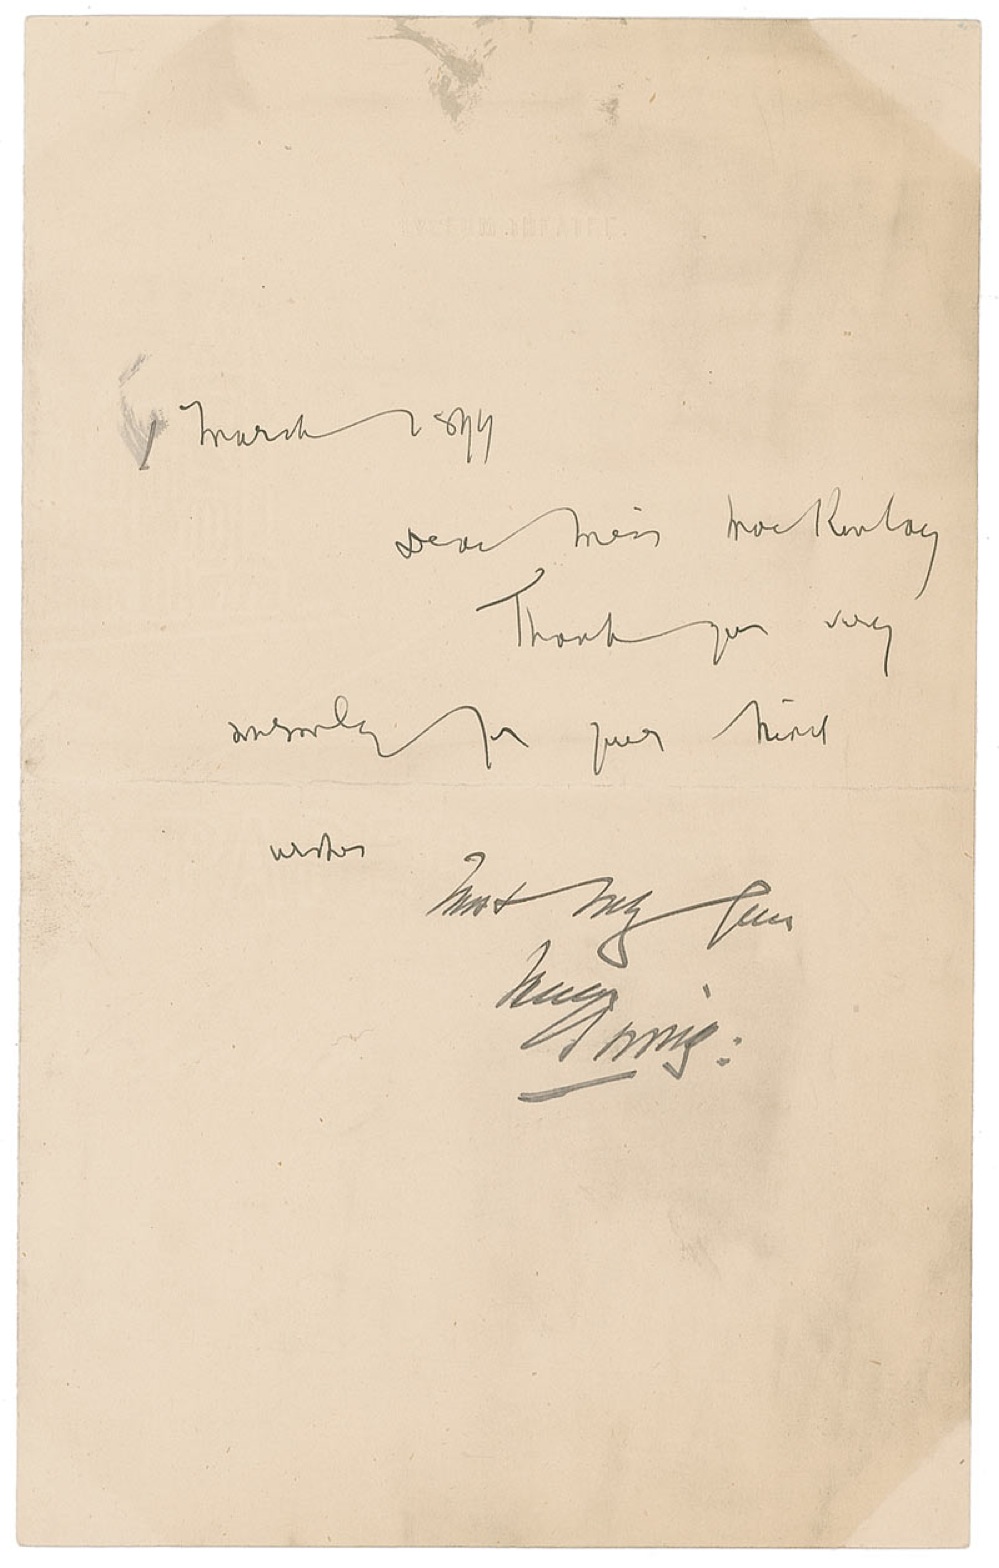 LYCEUM THEATRE.
1 March 1899
Dear Miss MacKinlay
Thank you very
sincerely for your kind
wishes
Most truly yours
Henry
Irving: